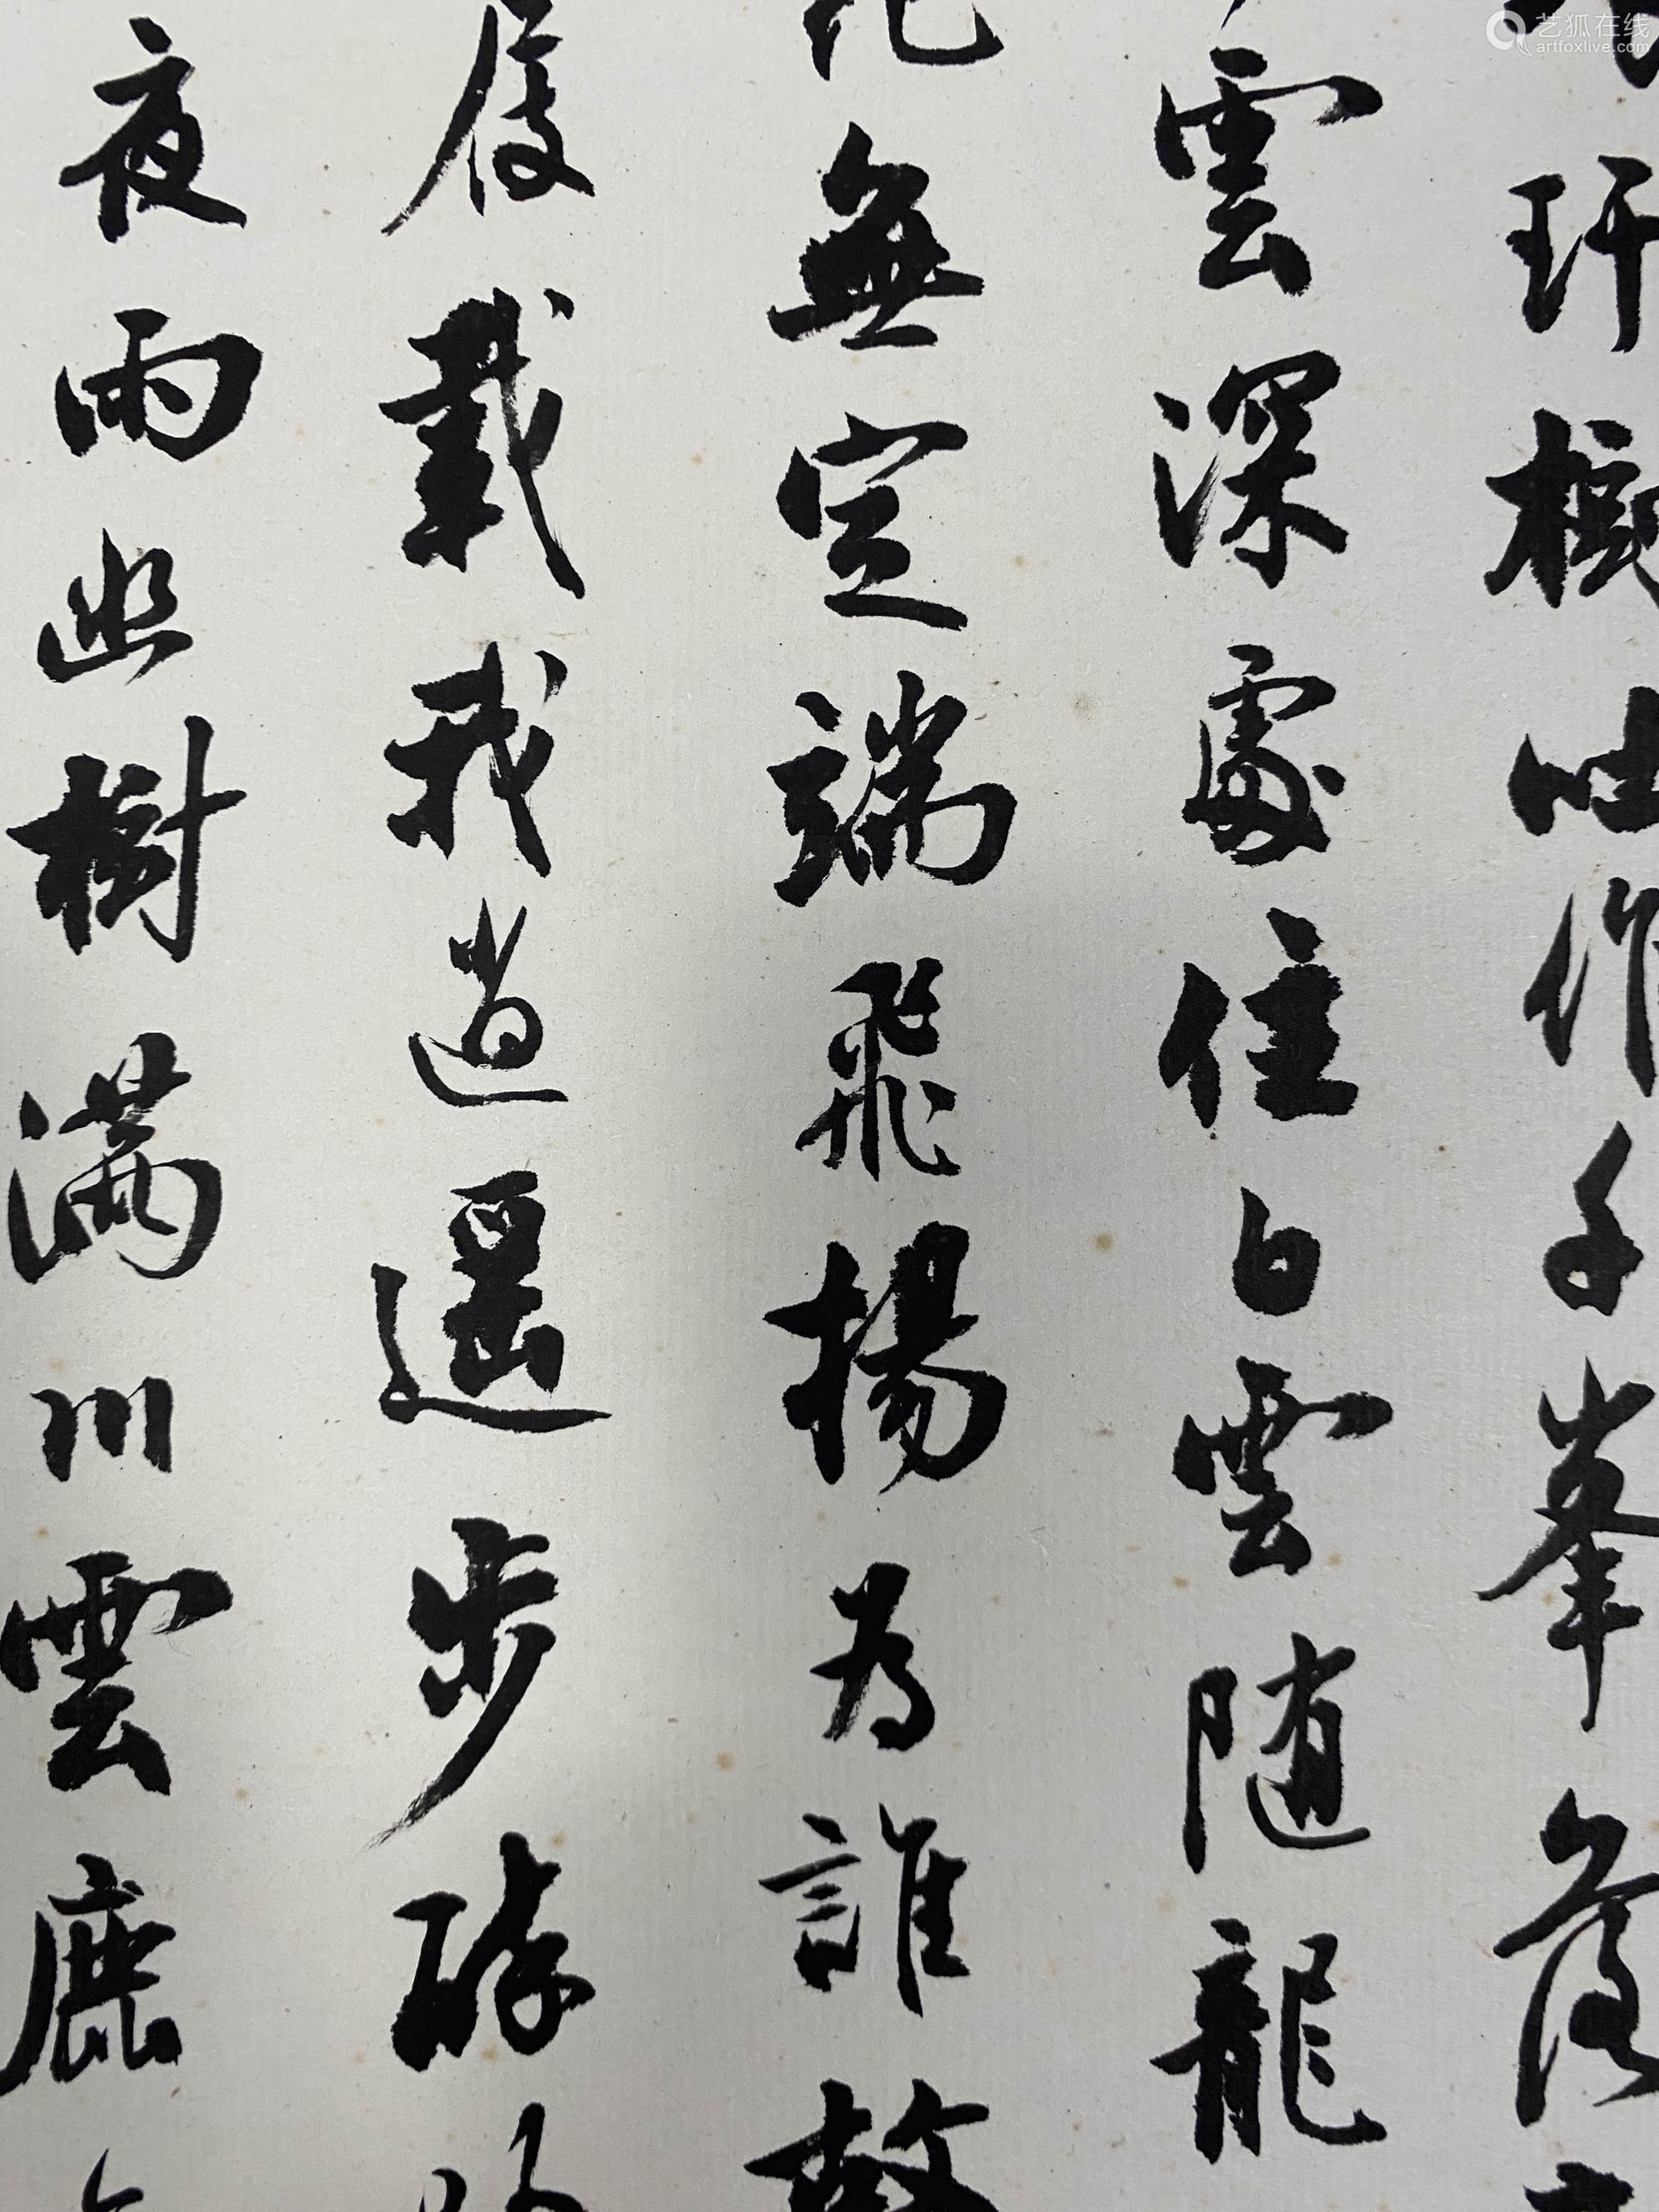 艺狐在线
artfoxlive.com
玕樹吐作千峯
雲深處住白雲隨龍
無定端飛揚為誰
載我逍遥步
夜雨幽樹滿川雲鹿